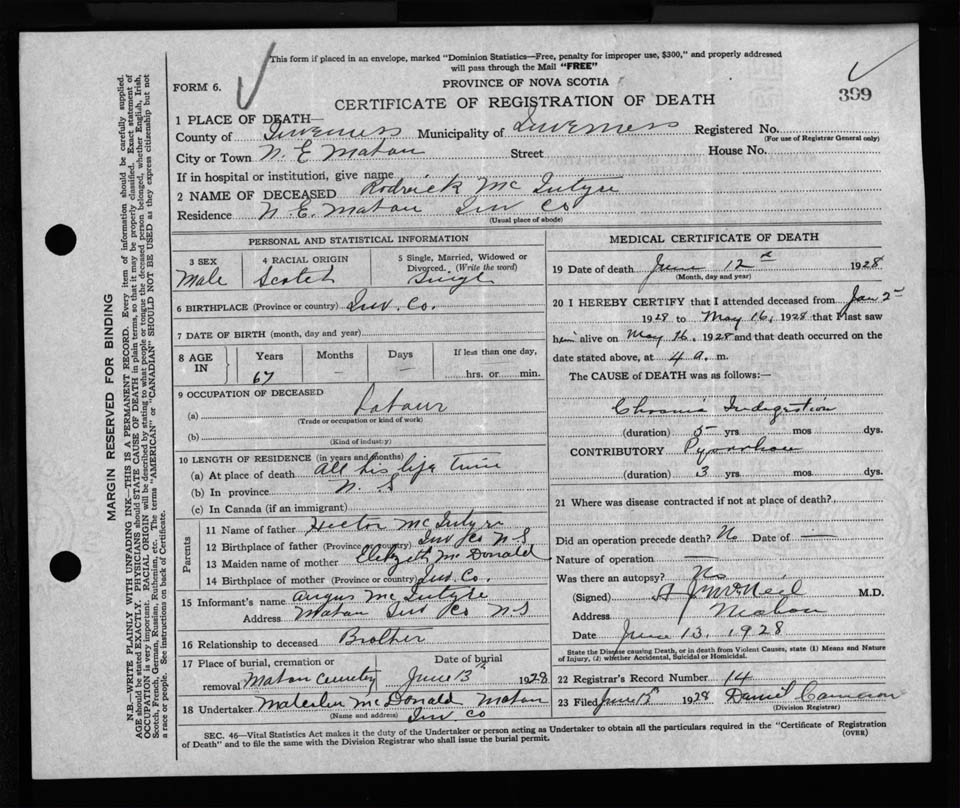 This form if placed in an envelope, marked "Dominion Statistics—Free, penalty for improper use, $300," and properly addressed
will pass through the Mail "FREE"
FORM 6.
PROVINCE OF NOVA SCOTIA
CERTIFICATE OF REGISTRATION OF DEATH
399
1 PLACE OF DEATH—
County of Inverness Municipality of Inverness Registered No.
(For use of Registrar General only)
City or Town N. E. Mabou Street House No.
If in hospital or institution, give name
2 NAME OF DECEASED Rodrick McIntyre
Residence N. E. Mabou Inv Co
(Usual place of abode)
PERSONAL AND STATISTICAL INFORMATION
3 SEX 4 RACIAL ORIGIN 5 Single, Married, Widowed or
Divorced. (Write the word)
Male Scotch Single
6 BIRTHPLACE (Province or country) Inv. Co.
7 DATE OF BIRTH (month, day and year)
8 AGE IN Years Months Days If less than one day,
67 — — hrs. or min.
9 OCCUPATION OF DECEASED
(a) Labour
(Trade or occupation or kind of work)
(b)
(Kind of industry)
10 LENGTH OF RESIDENCE (in years and months)
(a) At place of death all his life time
(b) In province N. S
(c) In Canada (if an immigrant)
Parents
11 Name of father Hector McIntyre
12 Birthplace of father (Province or country) Inv Co N S
13 Maiden name of mother McDonald
14 Birthplace of mother (Province or country) Inv. Co.
15 Informant's name Angus McIntyre
Address Mabou Inv Co N S
16 Relationship to deceased Brother
17 Place of burial, cremation or Date of burial
removal Mabou June 13th 1928
18 Undertaker McDonald Mabou
(Name and address) Inv Co
MEDICAL CERTIFICATE OF DEATH
19 Date of death June 12th 1928
(Month, day and year)
20 I HEREBY CERTIFY that I attended deceased from Jan 2nd
1928 to May 16, 1928 that I last saw
him alive on May 16, 1928 and that death occurred on the
date stated above, at 4 a. m.
The CAUSE of DEATH was as follows:—
Chronic Indigestion
(duration) 5 yrs mos dys.
CONTRIBUTORY Pyorrhoea
(duration) 3 yrs mos dys.
21 Where was disease contracted if not at place of death?
Did an operation precede death? No Date of —
Nature of operation —
Was there an autopsy? No
(Signed) McNeil M.D.
Address Mabou
Date June 13, 1928
State the Disease causing Death, or in death from Violent Causes, state (1) Means and Nature
of Injury, (2) whether Accidental, Suicidal or Homicidal.
22 Registrar's Record Number 14
23 Filed June 15th 1928 Daniel Cameron
(Division Registrar)
SEC. 46—Vital Statistics Act makes it the duty of the Undertaker or person acting as Undertaker to obtain all the particulars required in the "Certificate of Registration
of Death" and to file the same with the Division Registrar who shall issue the burial permit.
(OVER)
MARGIN RESERVED FOR BINDING
N.B.—WRITE PLAINLY WITH UNFADING INK—THIS IS A PERMANENT RECORD. Every item of information should be carefully supplied.
AGE should be stated EXACTLY. PHYSICIANS should STATE CAUSE OF DEATH in plain terms, so that it may be properly classified. Exact statement of
OCCUPATION is very important. RACIAL ORIGIN will be described by stating to what people or tongue the deceased person belonged, whether English, Irish,
Scotch, French, German, Russian, Ruthenian, etc. The terms "AMERICAN" or "CANADIAN" SHOULD NOT BE USED as they express citizenship but not
a race or people. See instructions on back of Certificate.